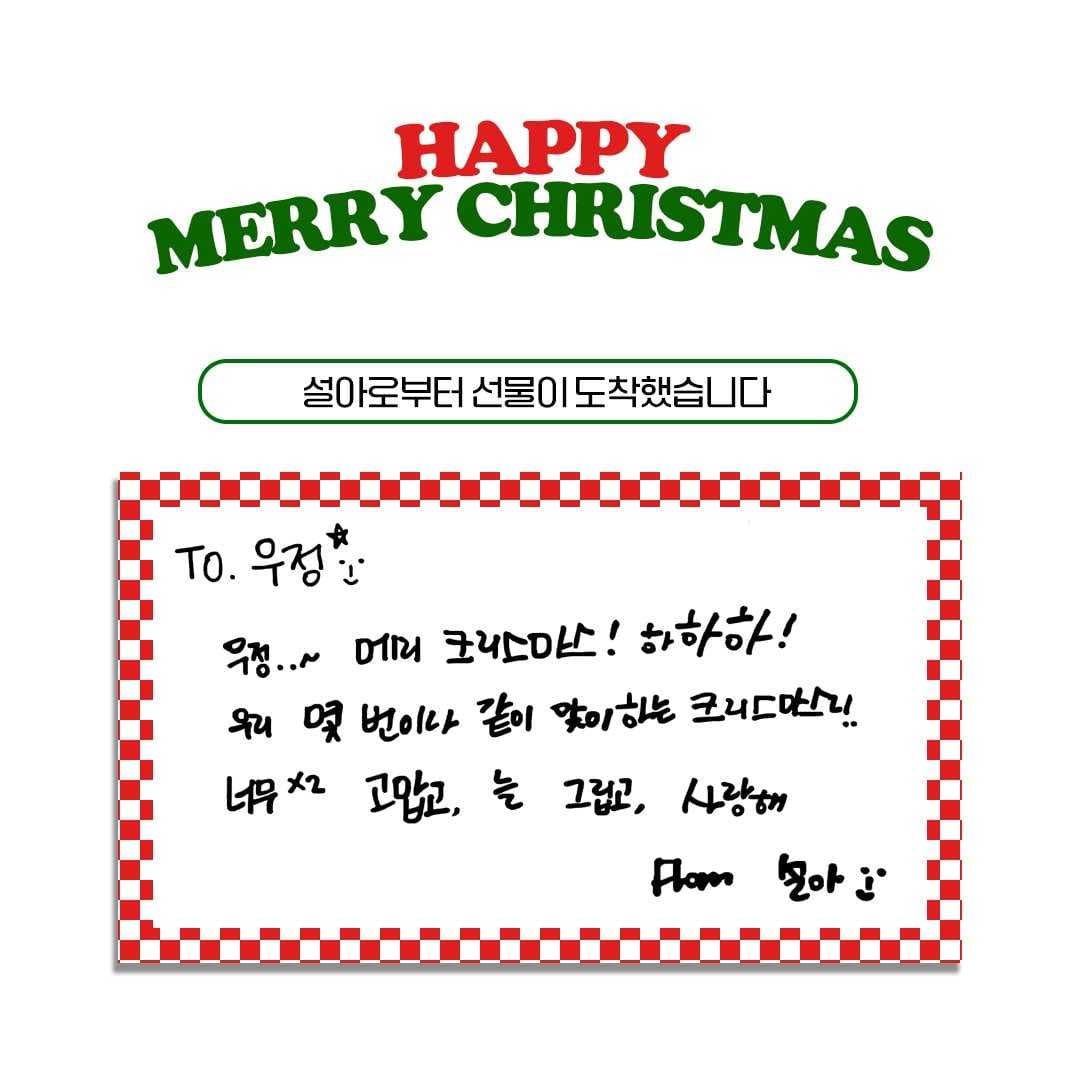 HAPPY
MERRY CHRISTMAS
설아로부터 선물이 도착했습니다
TO. 우정
우정..~ 메리 크리스마스! 하하하!
우리 몇 번이나 같이 맞이하는 크리스마스리!!
너무 x2 고맙고, 늘 그립고, 사랑해
From 설아